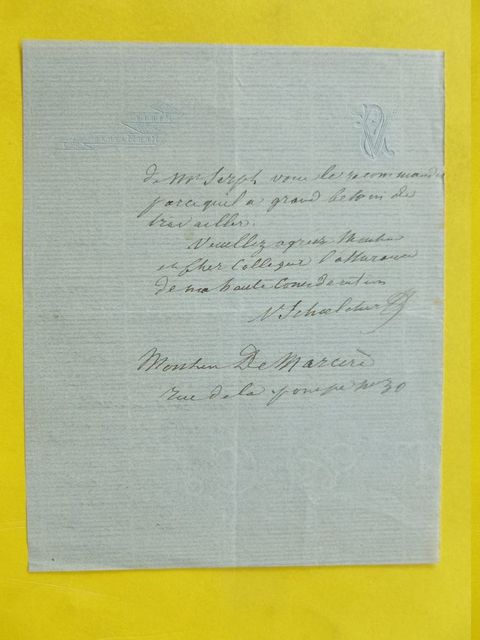 de Mr Serph vous le recommander
parcequ'il a grand besoin de
travailler.
Veuillez agréer Monsieur
et Cher Collègue l'assurance
de ma haute Considération
V. Schoelcher
Monsieur De Marcère
rue de la pompe no 30